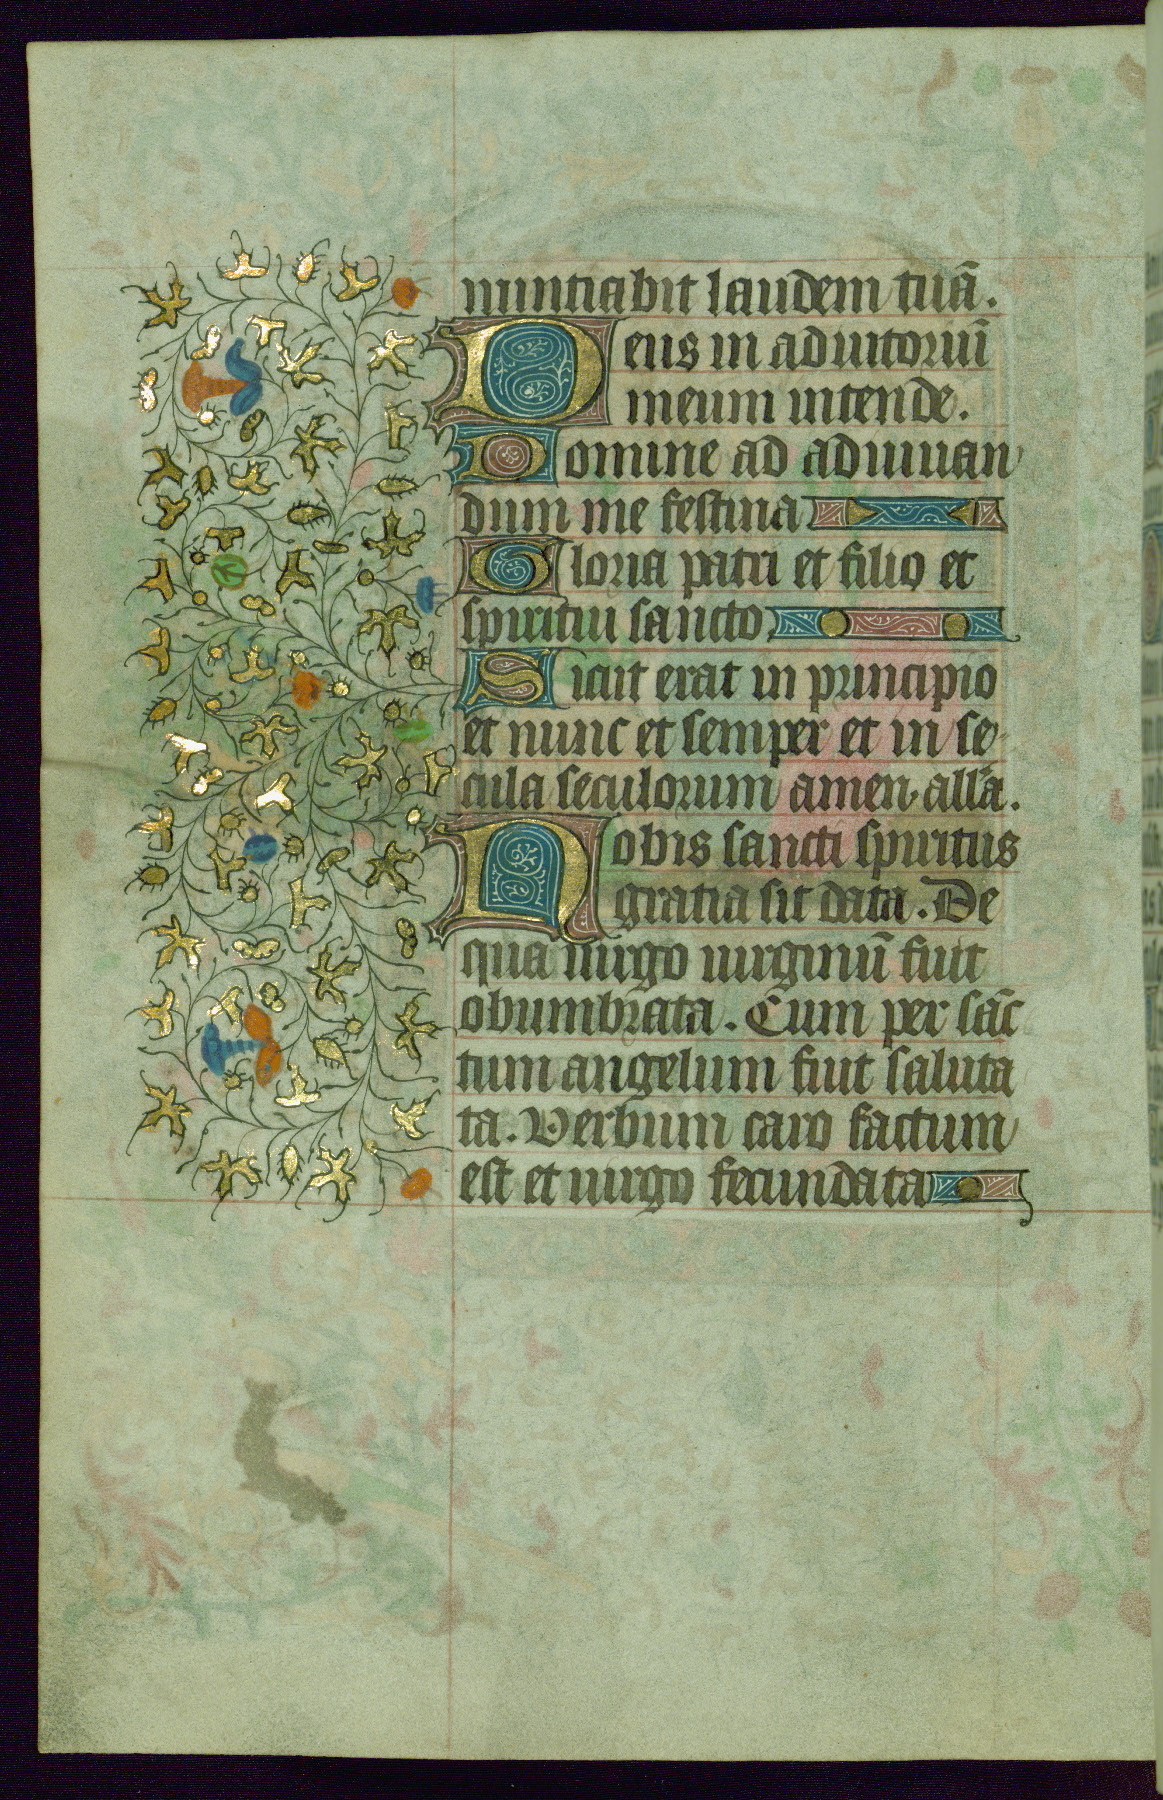 nuntiabit laudem tuā.
Deus in adiutoriū
meum intende.
Domine ad adiuuan
dum me festina
Gloria patri et filio et
spiritui sancto
Sicut erat in principio
et nunc et semper et in se
cula seculorum amen allā.
Nobis sancti spiritus
gratia sit data. De
qua uirgo uirginū fuit
obumbrata. Cum per sāc
tum angelum fuit saluta
ta. Verbum caro factum
est et uirgo fecundata